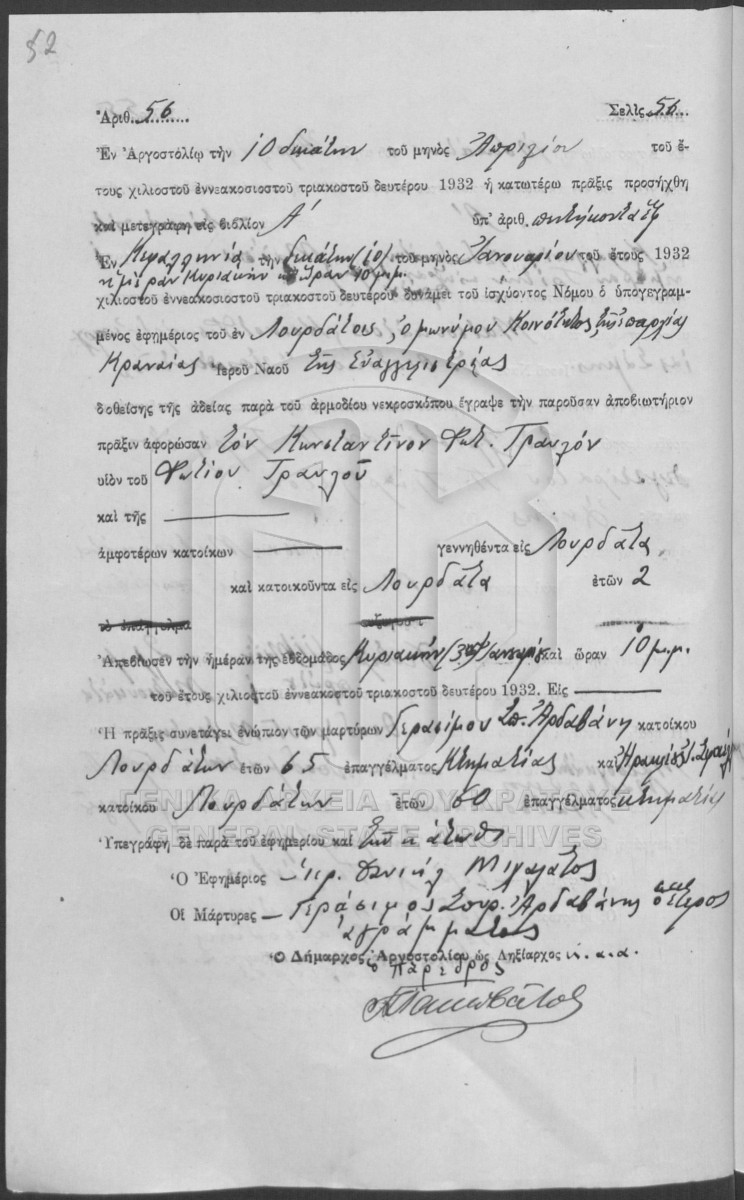 52
Ἀριθ. 56 Σελὶς 56
Ἐν Ἀργοστολίῳ τὴν 10 δεκάτην τοῦ μηνὸς Ἀπριλίου τοῦ ἔ-
τους χιλιοστοῦ ἐννεακοσιοστοῦ τριακοστοῦ δευτέρου 1932 ἡ κατωτέρω πρᾶξις προσήχθη
καὶ μετεγράφη εἰς βιβλίον Α' ὑπ' ἀριθ. πεντήκοντα ἕξ
Ἐν Κεφαλληνίᾳ τὴν δεκάτην (10) τοῦ μηνὸς Ἰανουαρίου τοῦ ἔτους 1932
ἡμέραν Κυριακὴν καὶ ὥραν 10 μ.μ.
χιλιοστοῦ ἐννεακοσιοστοῦ τριακοστοῦ δευτέρου δυνάμει τοῦ ἰσχύοντος Νόμου ὁ ὑπογεγραμ-
μένος ἐφημέριος τοῦ ἐν Λουρδάτοις ὁμωνύμου Κοινότητος τῆς ἐπαρχίας
Κραναίας ἱεροῦ Ναοῦ τῆς Εὐαγγελιστρίας
δοθείσης τῆς ἀδείας παρὰ τοῦ ἁρμοδίου νεκροσκόπου ἔγραψε τὴν παροῦσαν ἀποβιωτήριον
πρᾶξιν ἀφορῶσαν τὸν Κωνσταντῖνον Φωτ. Τραυλόν
υἱὸν τοῦ Φωτίου Τραυλοῦ
καὶ τῆς
ἀμφοτέρων κατοίκων γεννηθέντα εἰς Λουρδᾶτα
καὶ κατοικοῦντα εἰς Λουρδᾶτα ἐτῶν 2
τὸ ἐπάγγελμα
Ἀπεβίωσεν τὴν ἡμέραν τῆς ἑβδομάδος Κυριακὴν καὶ ὥραν 10 μ.μ.
τοῦ ἔτους χιλιοστοῦ ἐννεακοσιοστοῦ τριακοστοῦ δευτέρου 1932. Εἰς
Ἡ πρᾶξις συνετάγει ἐνώπιον τῶν μαρτύρων Γερασίμου Σπ. Ἀρδαβάνη κατοίκου
Λουρδάτων ἐτῶν 65 ἐπαγγέλματος Κτηματίας καὶ
κατοίκου Λουρδάτων ἐτῶν 60 ἐπαγγέλματος κτηματίας
ΓΕΝΙΚΑ ΑΡΧΕΙΑ ΤΟΥ ΚΡΑΤΟΥΣ
GENERAL STATE ARCHIVES
Ὑπεγράφη δὲ παρὰ τοῦ ἐφημερίου καὶ τῶν κάτωθι
Ὁ Ἐφημέριος – ἱερ. Δανιὴλ Μιχαλᾶτος
Οἱ Μάρτυρες – Γεράσιμος Σπυρ. Ἀρδαβάνης ὁ ἕτερος
ἀγράμματος
Ὁ Δήμαρχος Ἀργοστολίου ὡς Ληξίαρχος κ.α.α.
ὁ Πάρεδρος